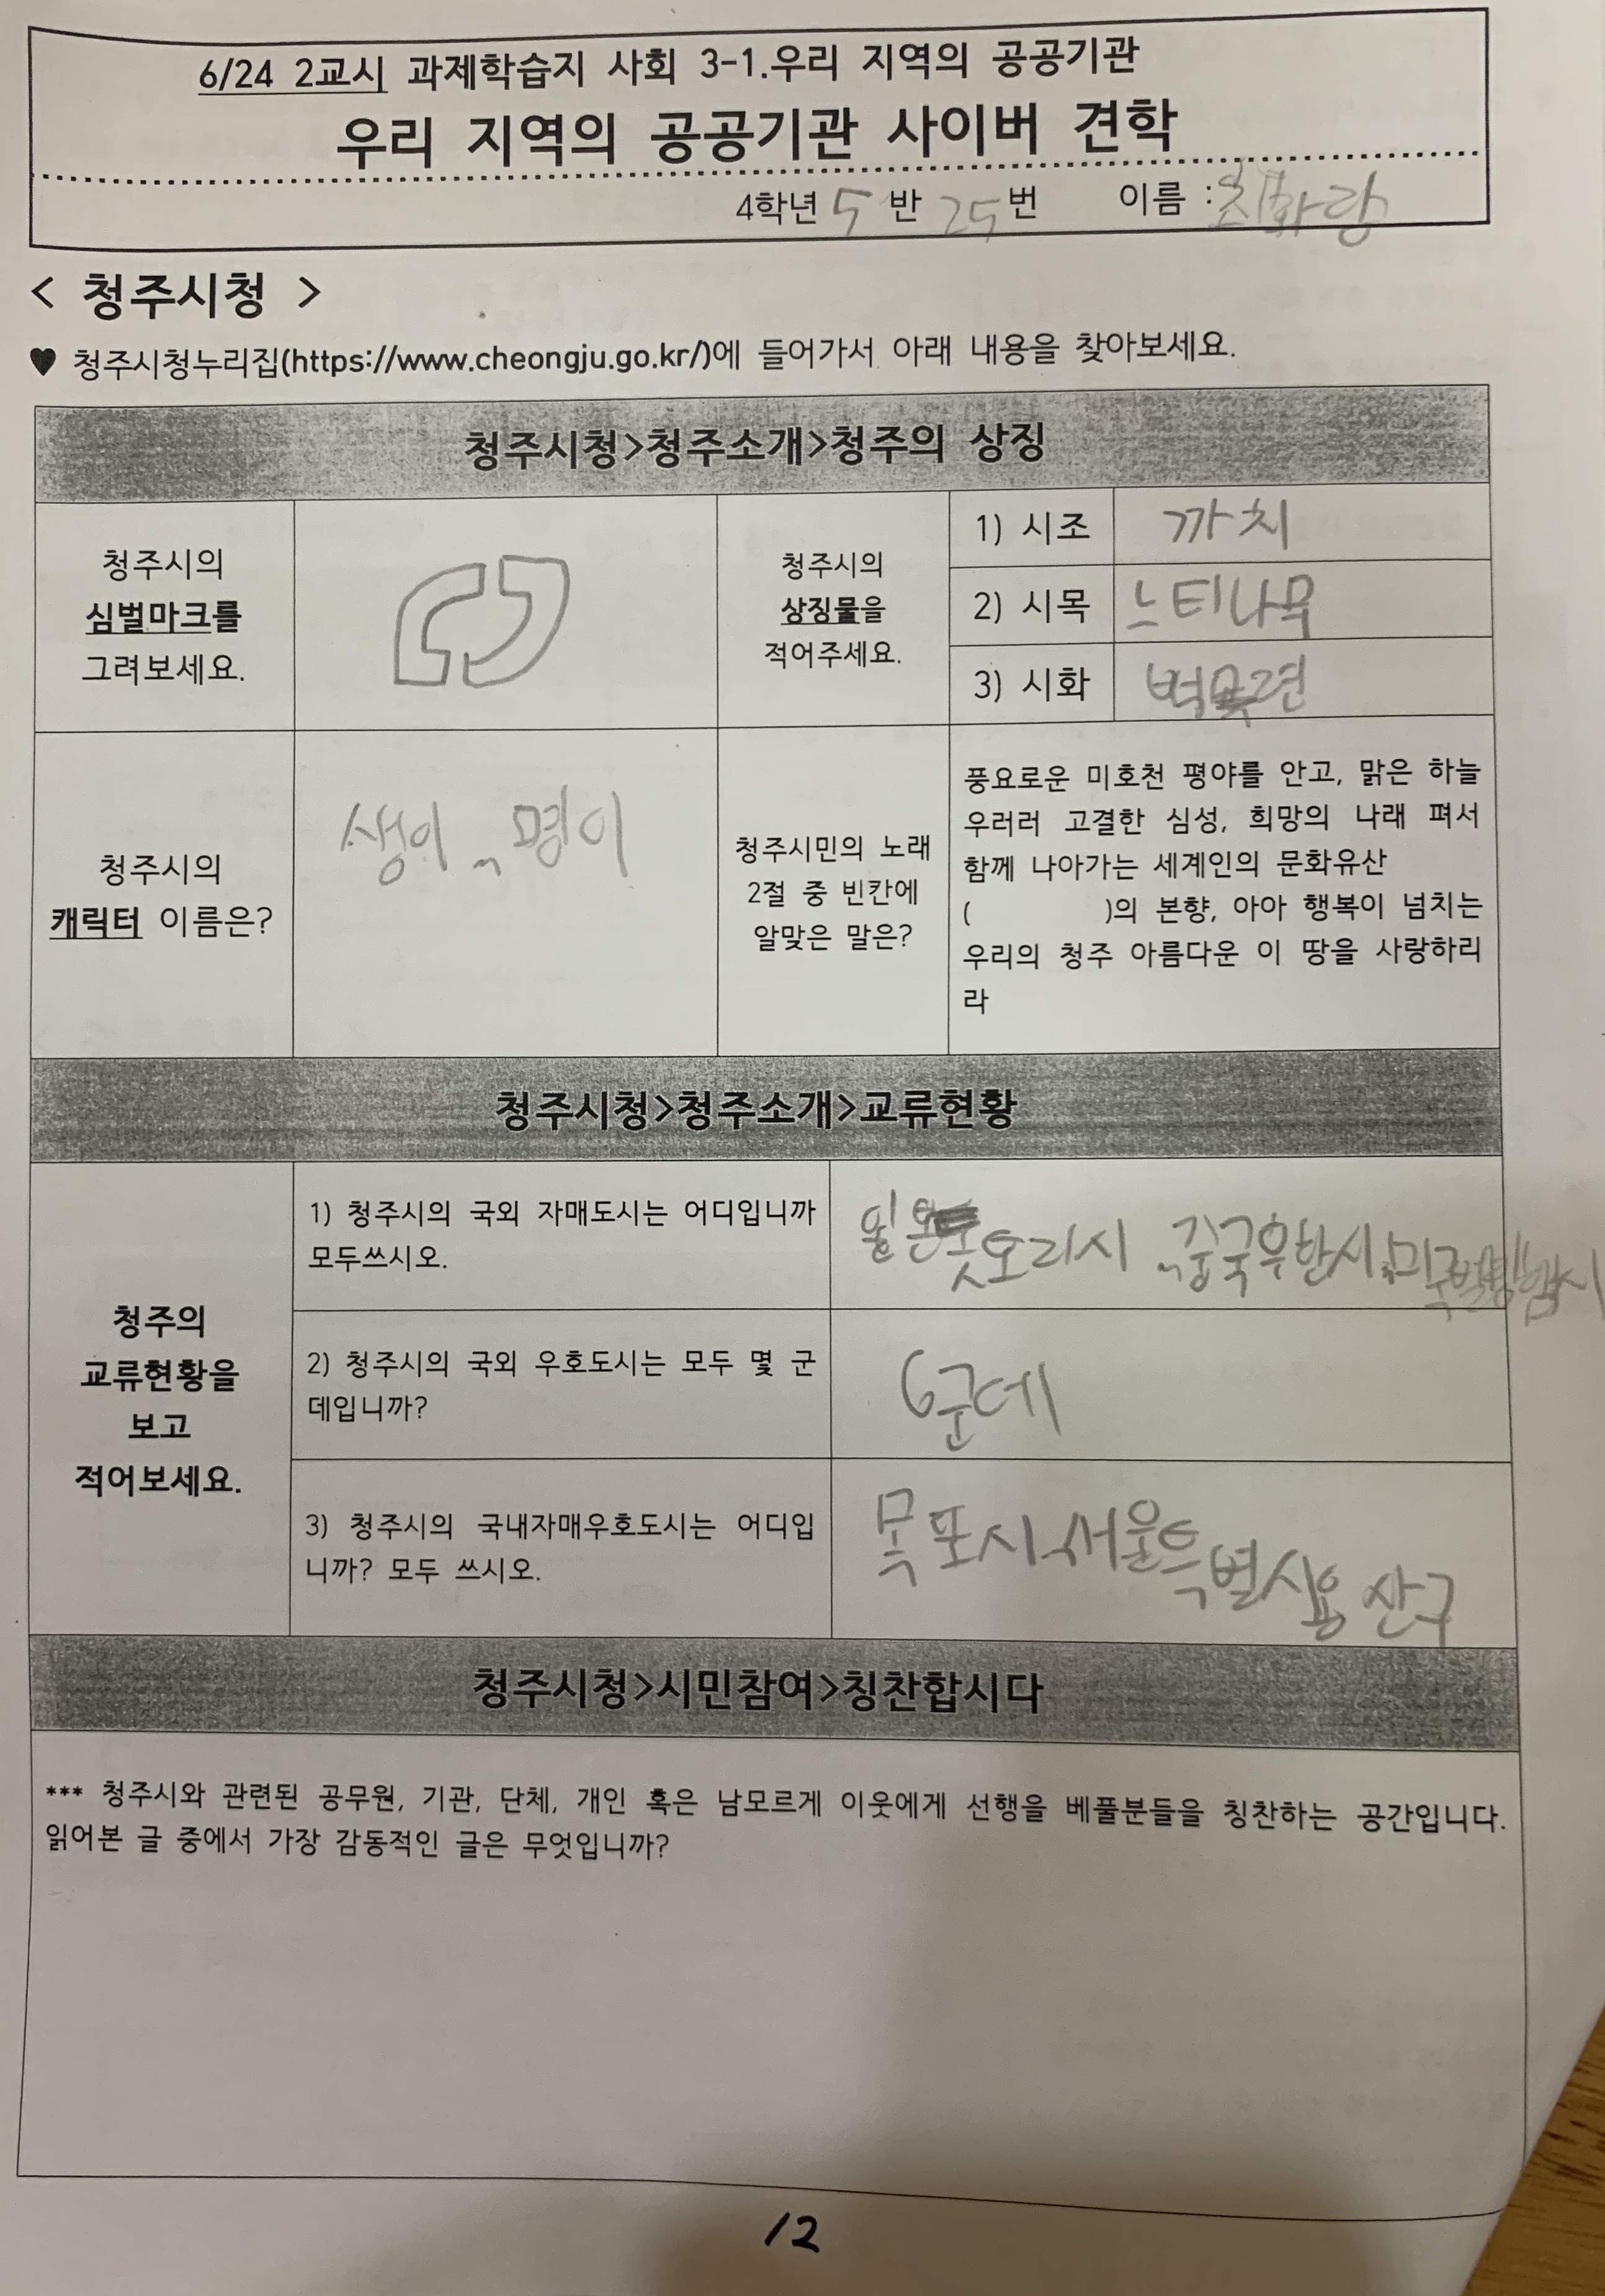 6/24 2교시 과제학습지 사회 3-1.우리 지역의 공공기관
우리 지역의 공공기관 사이버 견학
4학년 5 반 25번 이름 :최화랑
< 청주시청 >
♥ 청주시청누리집(https://www.cheongju.go.kr/)에 들어가서 아래 내용을 찾아보세요.
청주시청>청주소개>청주의 상징
청주시의
심벌마크를
그려보세요.
청주시의
상징물을
적어주세요.
1) 시조 까치
2) 시목 느티나무
3) 시화 백목련
청주시의
캐릭터 이름은?
생이 명이
청주시민의 노래
2절 중 빈칸에
알맞은 말은?
풍요로운 미호천 평야를 안고, 맑은 하늘
우러러 고결한 심성, 희망의 나래 펴서
함께 나아가는 세계인의 문화유산
( )의 본향, 아아 행복이 넘치는
우리의 청주 아름다운 이 땅을 사랑하리
라
청주시청>청주소개>교류현황
청주의
교류현황을
보고
적어보세요.
1) 청주시의 국외 자매도시는 어디입니까
모두쓰시오.
일본 돗토리시 중국우한시
2) 청주시의 국외 우호도시는 모두 몇 군
데입니까?
6군데
3) 청주시의 국내자매우호도시는 어디입
니까? 모두 쓰시오.
목포시 서울특별시용산구
청주시청>시민참여>칭찬합시다
*** 청주시와 관련된 공무원, 기관, 단체, 개인 혹은 남모르게 이웃에게 선행을 베풀분들을 칭찬하는 공간입니다.
읽어본 글 중에서 가장 감동적인 글은 무엇입니까?
12